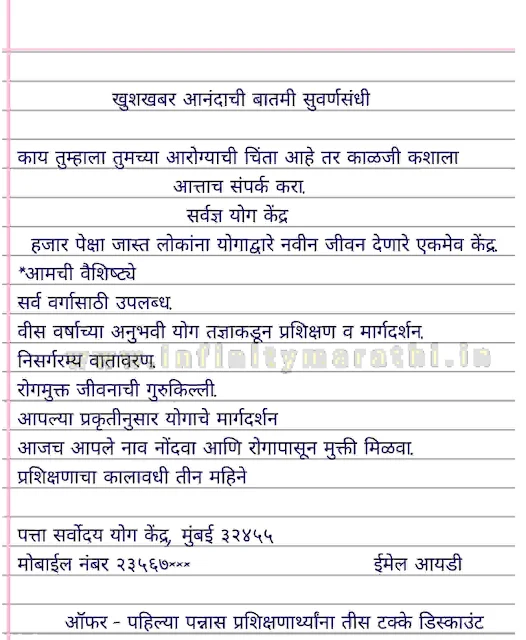 खुशखबर आनंदाची बातमी सुवर्णसंधी
काय तुम्हाला तुमच्या आरोग्याची चिंता आहे तर काळजी कशाला
आत्ताच संपर्क करा.
सर्वज्ञ योग केंद्र
हजार पेक्षा जास्त लोकांना योगाद्वारे नवीन जीवन देणारे एकमेव केंद्र.
*आमची वैशिष्ट्ये
सर्व वर्गासाठी उपलब्ध.
वीस वर्षाच्या अनुभवी योग तज्ञाकडून प्रशिक्षण व मार्गदर्शन.
निसर्गरम्य वातावरण.
www.infinitymarathi.in
रोगमुक्त जीवनाची गुरुकिल्ली.
आपल्या प्रकृतीनुसार योगाचे मार्गदर्शन
आजच आपले नाव नोंदवा आणि रोगापासून मुक्ती मिळवा.
प्रशिक्षणाचा कालावधी तीन महिने
पत्ता सर्वोदय योग केंद्र, मुंबई ३२४५५
मोबाईल नंबर २३५६७××× ईमेल आयडी
ऑफर - पहिल्या पन्नास प्रशिक्षणार्थ्यांना तीस टक्के डिस्काउंट